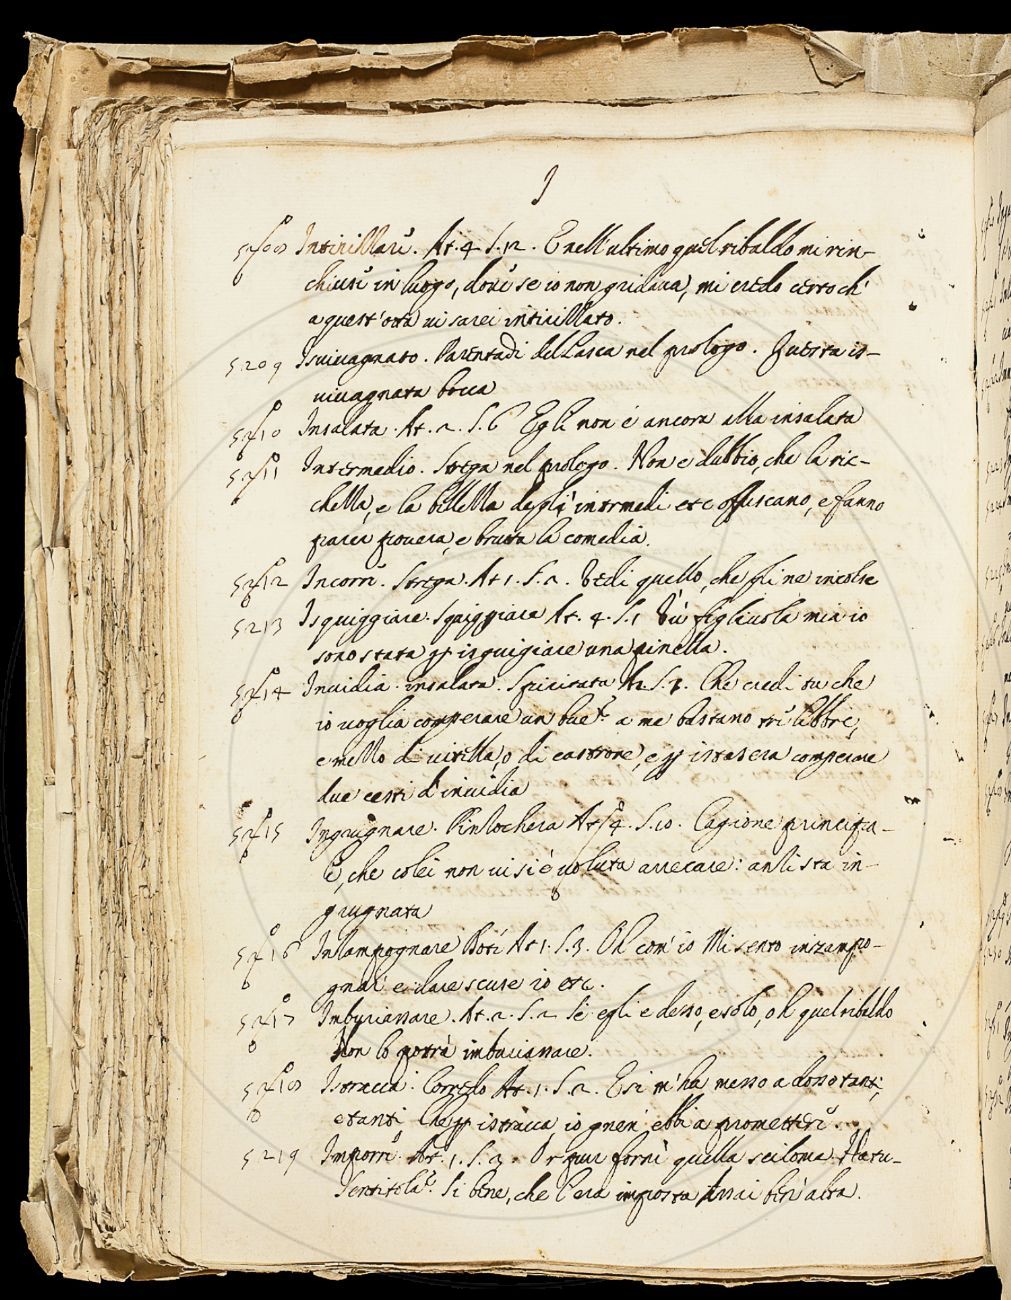 I
5208 Intirillare. At. 4 S. 12. E nell'ultimo quel ribaldo mi rin-
chiuse in luogo, dove se io non gridava, mi credo certo ch'
a quest'otta vi sarei intirillato.
5209 Isvivagnato. Parentadi del Lasca nel prologo. Questa is-
vivagnata bocca
5210 Insalata. At. 2. S. 6 Egli non é ancora alla insalata
5211 Intermedio. Strega nel prologo. Non e dubbio, che la ric-
chezza, e la bellezza degli intermedi etc offuscano, e fanno
parer povera, e brutta la comedia.
5212 Incorre. Strega. At 1. S. 2. Vedi quello, che gli ne incolse
5213 Isquiggiare. Squiggiare At. 4. S. 1 Tu figliuola mia io
sono stata p isguigiare una pinella.
5214 Invidia. insalata. Spiritata At. 2. S. 3. Che credi tu che
io voglia comperare un bue? a me bastano tre libbre,
e mezzo di vitella, o di castrone, e p istasera comperare
due cesti d'invidia
5215 Ingrugnare. Pinzochera At. 4. S. 10. Cagione principa-
le, che colei non vi si è voluta arrecare: anzi sta in-
grugnata
5216 Inzampognare Doti At 1. S. 3. Oh com'io Mi sento inzampo-
gnare e dare scuse io etc.
5217 Imburiassare. At. 2. S. 2 Sè egli e desso, e solo, oh quel ribaldo
Non lo potrà imburiassare.
5218 Istracca. Corredo At. 1. S. 2. E si m'ha messo a dosso tanti,
e tanti, Che p istracca io gnen' ebbi a promettere.
5219 Imporre. At. 1. S. 3. Or pur fornì quella sciloma
Sentitola? Si bene, che l'era imposta Assai ben' alta.